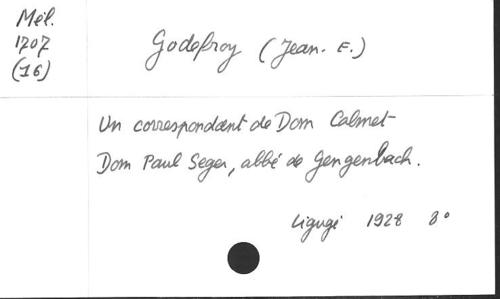 Mél.
1707
(16)
Godefroy (Jean. E.)
Un correspondant de Dom Calmet-
Dom Paul Seger, abbé de Gengenbach.
Ligugé 1928 8°